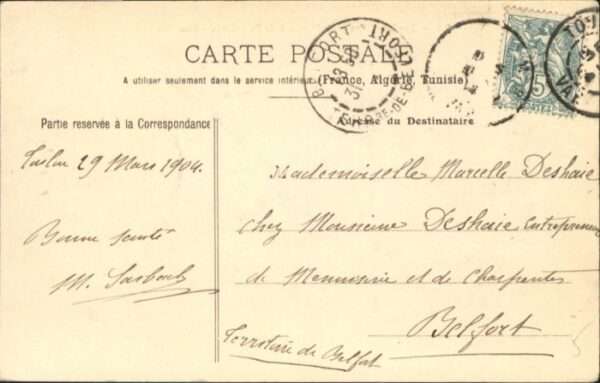 CARTE POSTALE
A utiliser seulement dans le service intérieur (France, Algérie, Tunisie)
Partie réservée à la Correspondance
Adresse du Destinataire
BELFORT
31
TOU
VAR
5
POSTES
Toulon 29 Mars 1904.
Bonne santé
M.
Mademoiselle Marcelle Deshaie
chez Monsieur Deshaie entrepreneur
de Menuiserie et de Charpentes
Belfort
Territoire de Belfort